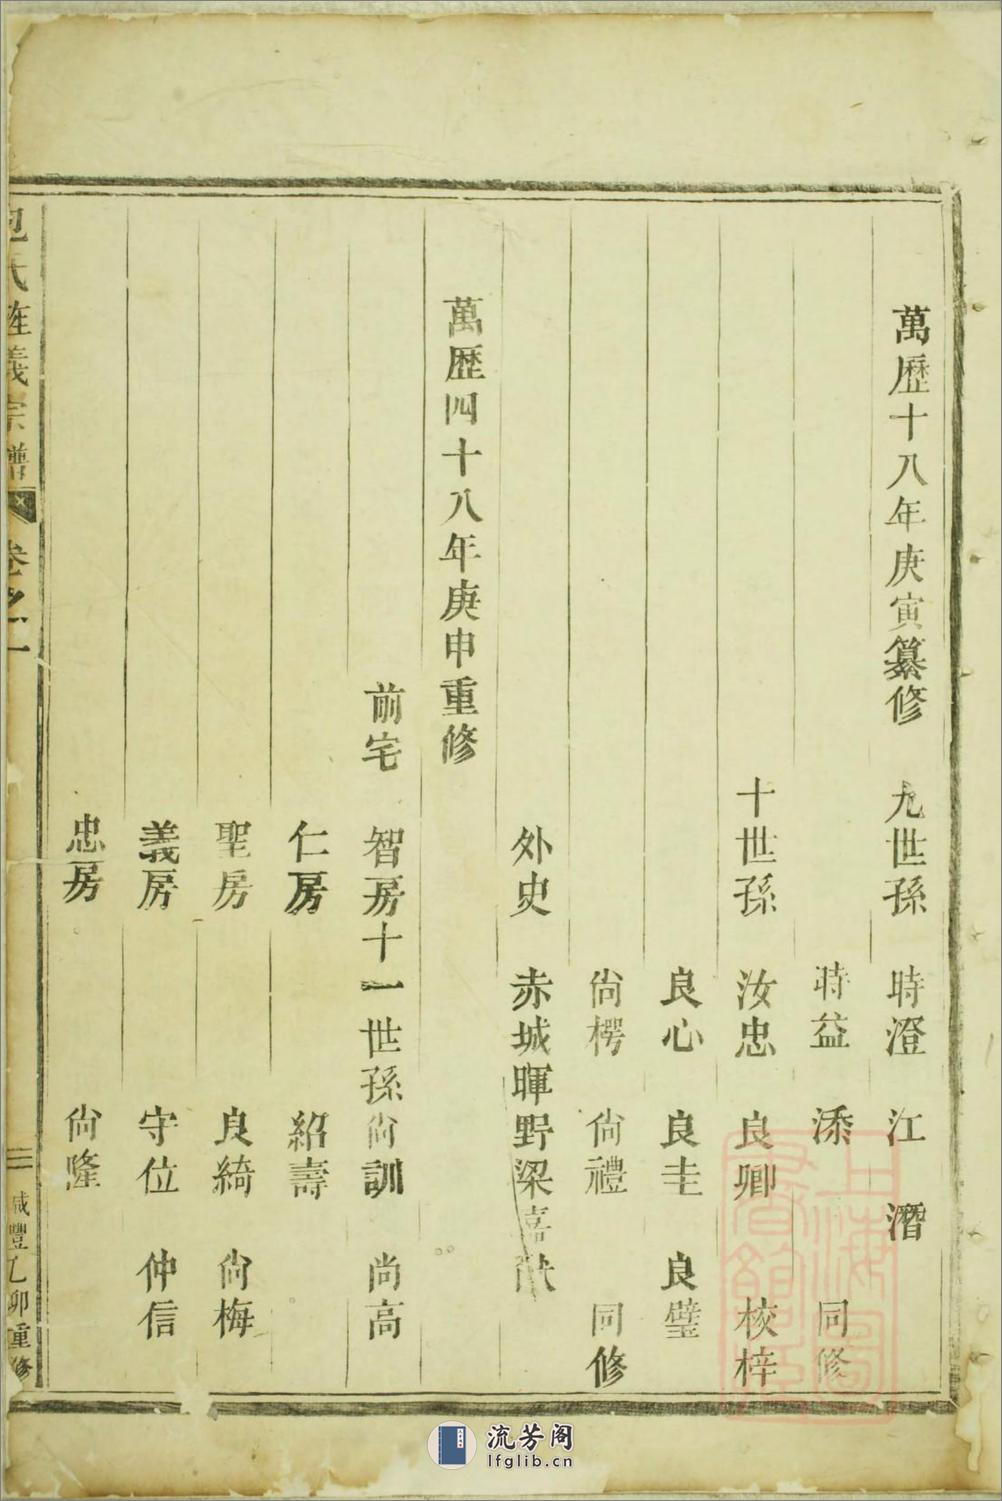 萬歷十八年庚寅纂修 九世孫 時澄 江 潛
時益 添 同修
十世孫 汝忠 良卿 校梓
良心 良圭 良璧
尙楞 尙禮 同修
外史 赤城暉野梁喜
萬歷四十八年庚申重修
前宅 智房十一世孫尙訓 尚高
仁房 紹壽
聖房 良綺 尙梅
義房 守位 仲信
忠房 尙隆
包氏旌義宗譜 卷之一 二 咸豐乙卯重修
上海圖書館藏
流芳阁
lfglib.cn